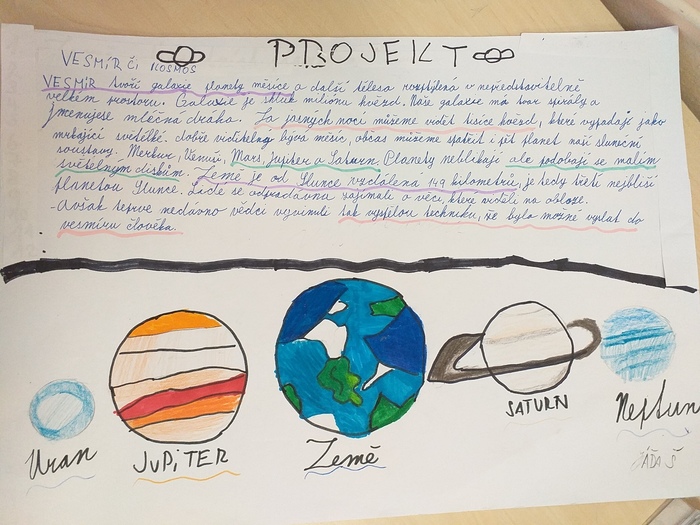 PROJEKT
VESMÍR ČI KOSMOS
VESMÍR tvoří galaxie planety měsíce a další tělesa rozptýlená v nepředstavitelně
velkém prostoru. Galaxie je shluk milionu hvězd. Naše galaxie má tvar spirály a
jmenujese mléčná dráha. Za jasných nocí můžeme vidět tisíce hvězd, které vypadají jako
mrkající světélka. dobře viditelný bývá měsíc, občas můžeme spatřit i pět planet naší sluneční
soustavy. Merkur, Venuši, Mars, Jupiter a Saturn. Planety neblikají ale podobají se malím
světelným diskům. Země je od Slunce vzdálena 149 kilometrů, je tedy třetí nejbliší
planetou Slunce. Lidé se odpradávna zajímali o věci, které viděli na obloze.
-Avšak teprve nedávno vědci vyvinuli tak vyspělou techniku, že bylo možné vyslat do
vesmíru člověka.
Uran
JUPiTER
Země
SATURN
Neptun
ÁĎA Š